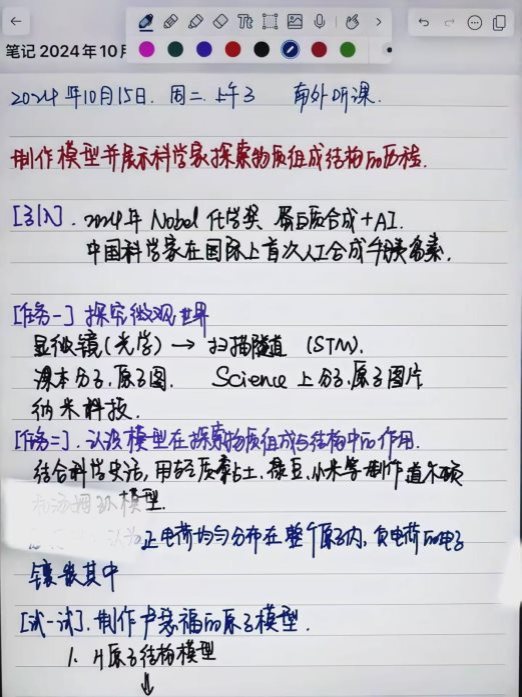 笔记 2024年10月
2024年10月15日. 周二. 上午3 南外听课.
制作模型并展示科学家探索物质组成结构的历程.
[引入]. 2024年 Nobel 化学奖 蛋白质合成+AI.
中国科学家在国际上首次人工合成牛胰岛素.
[任务一] 探究微观世界
显微镜(光学) → 扫描隧道 (STM).
课本分子.原子图. Science 上分子.原子图片
纳米科技.
[任务二]. 认识模型在探索物质组成与结构中的作用.
结合科学史话, 用轻质黏土、绿豆、小米等制作道尔顿
模型.
认为正电荷均匀分布在整个原子内, 负电荷的电子
镶嵌其中
[试一试]. 制作卢瑟福的原子模型.
1. 片原子结构模型
↓